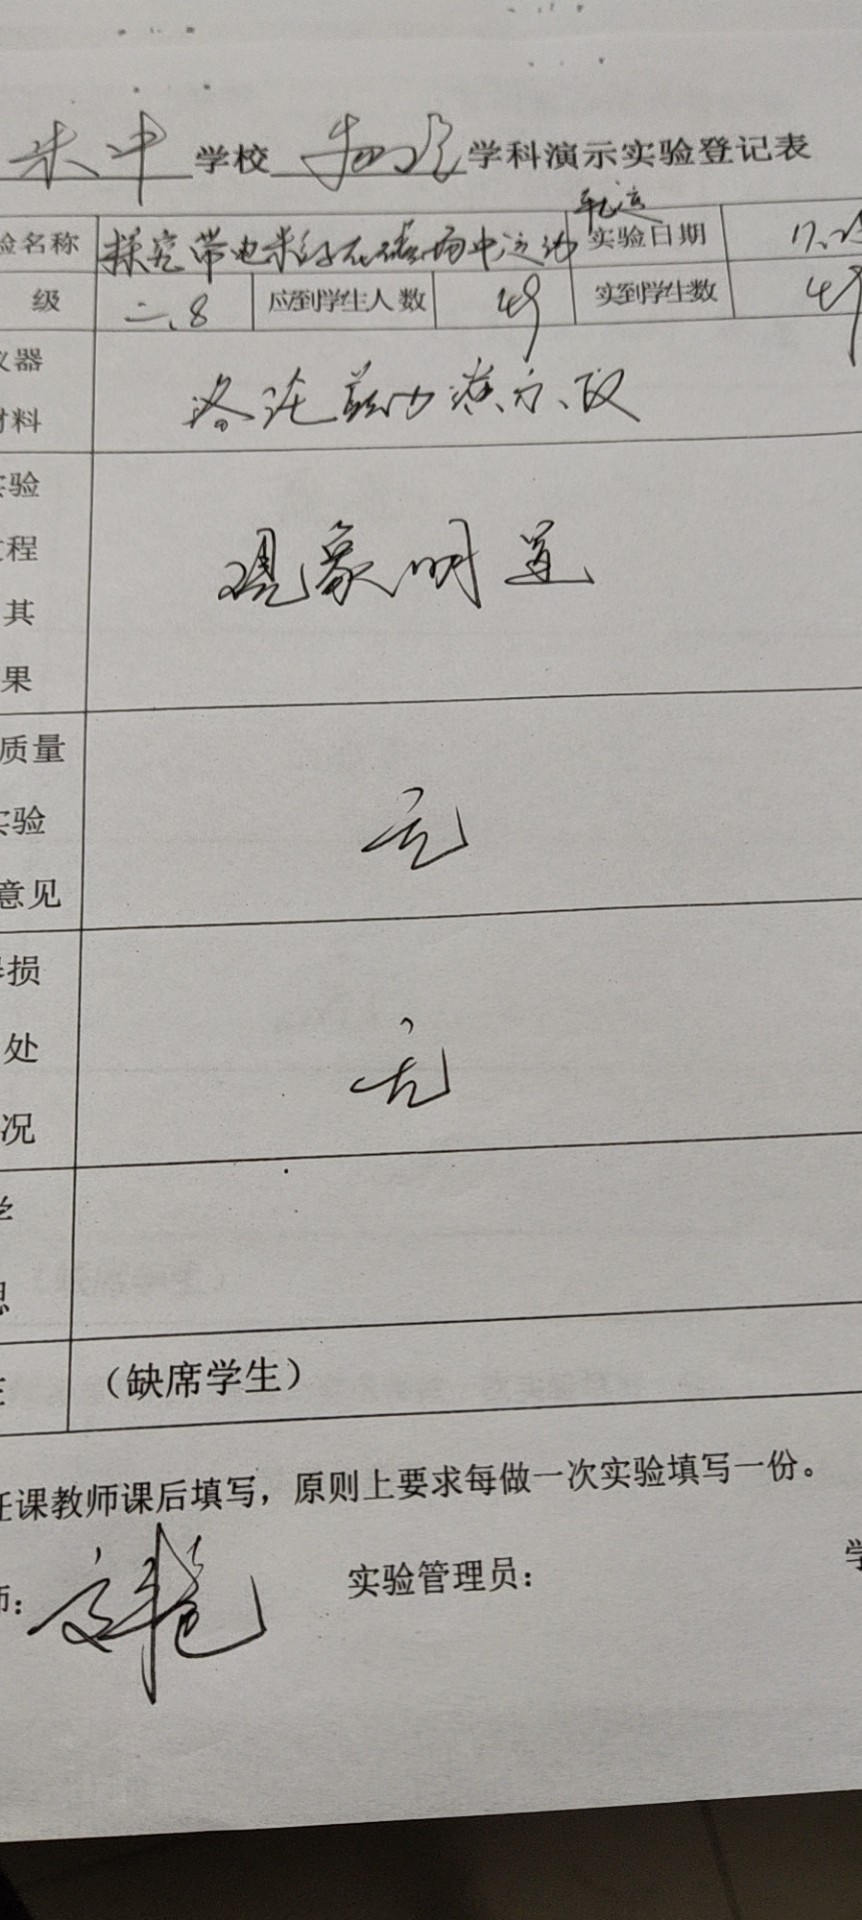 朱中 学校 物理 学科演示实验登记表
轨迹
验名称 探究带电粒子在磁场中运动 实验日期 17.
级 二.8 应到学生人数 49 实到学生数 49
仪器
材料
洛仑兹力演示仪
实验
过程
其
果
现象明显
质量
实验
意见
无
损
处
况
无
学
思
（缺席学生）
任课教师课后填写，原则上要求每做一次实验填写一份。
师： 实验管理员： 学